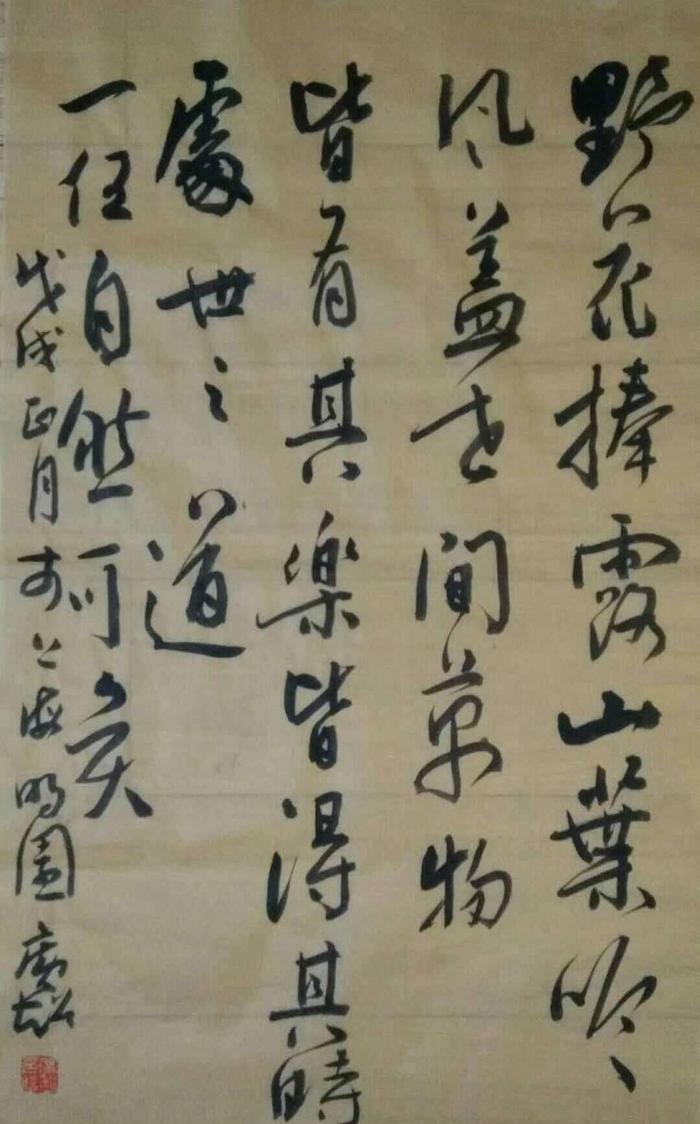 野花捧露山葉吟
风蓋世间萬物
皆有其樂皆得其時
處世之道
一任自然可矣
戊戌正月于上海明園